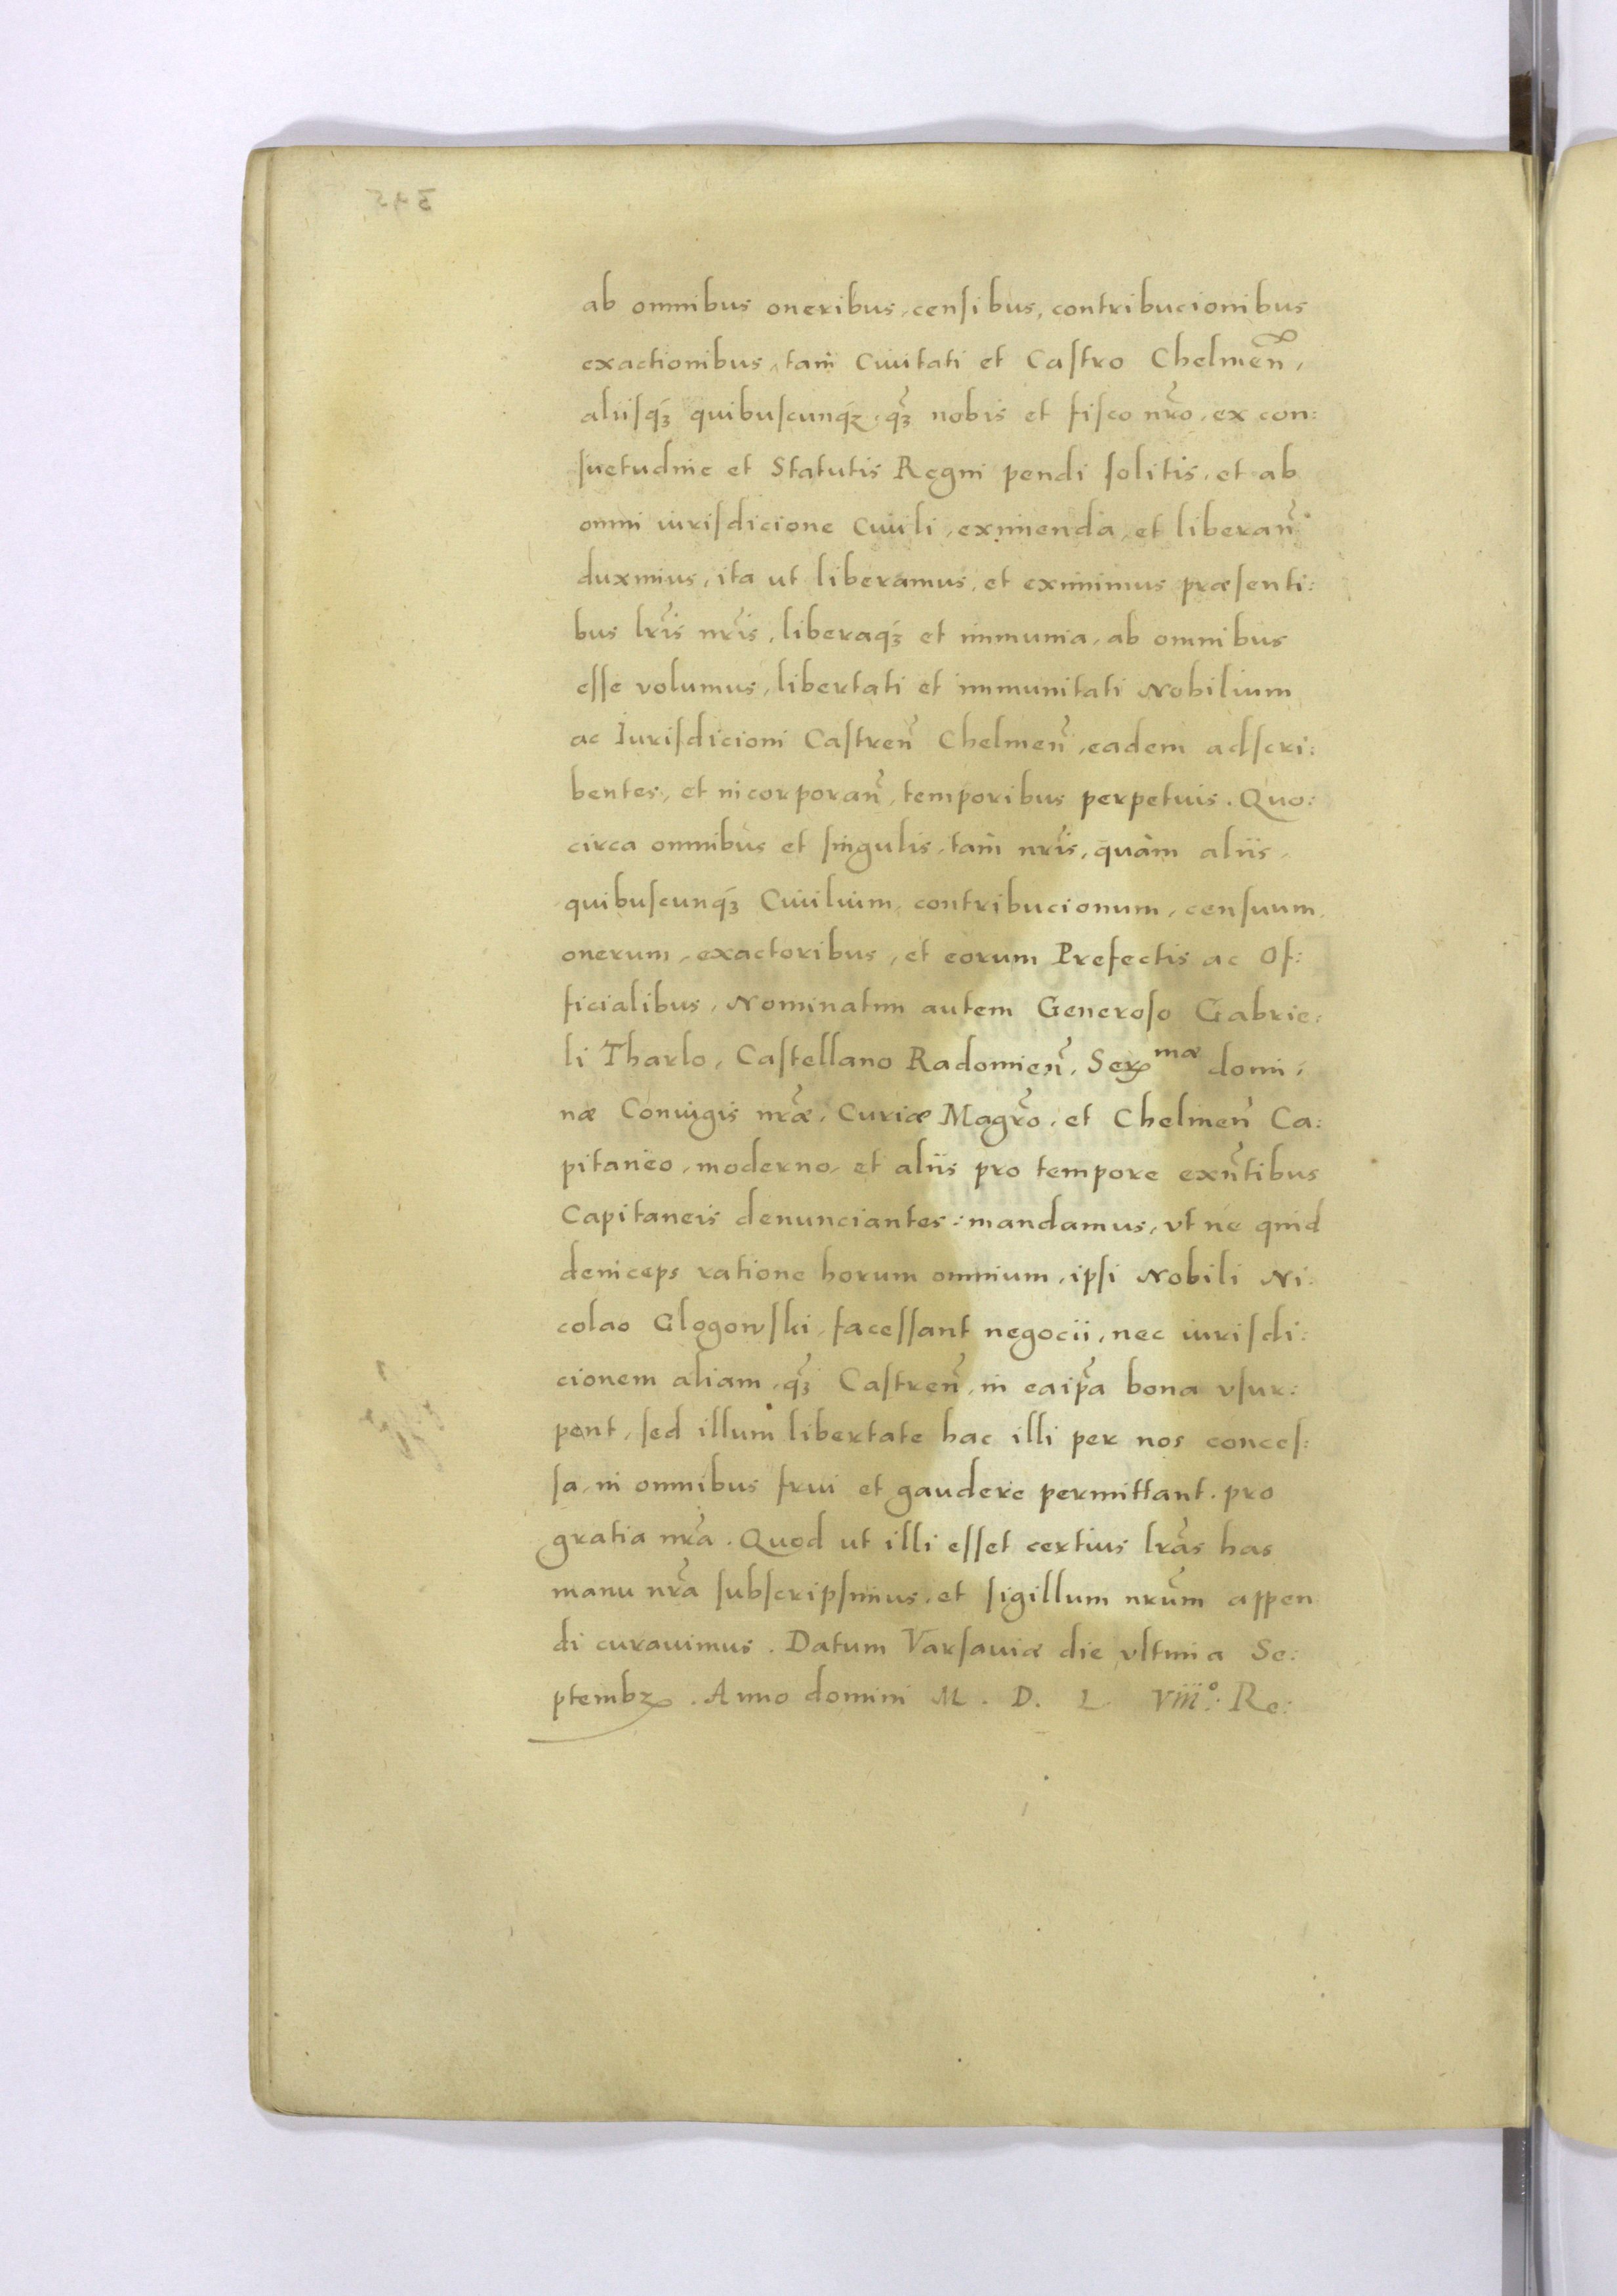 ab omnibus oneribus, censibus, contribucionibus
exactionibus, tam Ciuitati et Castro Chelmen̄,
aliisq́ʒ quibuscunq́ʒ, q̃ʒ nobis et fisco nr̃o, ex con:
suetudine et Statutis Regni pendi solitis, et ab
omni iurisdicione Ciuili, eximenda, et liberañ
duximus, ita ut liberamus, et eximimus præsenti:
bus lr̃is nr̃is, liberaq́ʒ et immunia, ab omnibus
esse volumus, libertati et immunitati Nobilium
ac Iurisdicioni Castreñ Chelmeñ, eadem adscri:
bentes, et incorporañ, temporibus perpetuis. Quo:
circa omnibus et singulis, tam nr̃is, quàm aliis,
quibuscunq́ʒ Ciuilium, contribucionum, censuum,
onerum, exactoribus, et eorum Prefectis ac Of:
ficialibus, Nominatim autem Generoso Gabrie:
li Tharlo, Castellano Radomieñ, Serᵐᵃᵉ domi:
næ Coniugis nr̃æ, Curiæ Magr̃o, et Chelmeñ Ca:
pitaneo, moderno, et aliis pro tempore exñtibus
Capitaneis denunciantes: mandamus, vt ne quid
deinceps ratione horum omnium, ipsi Nobili Ni:
colao Glogowski, facessant negocii, nec iurisdi:
cionem aliam, q̃ʒ Castreñ, in eaip̃a bona vsur:
pent, sed illum libertate hac illi per nos conces:
sa, in omnibus frui et gaudere permittant. pro
gratia nr̃a. Quod ut illi esset certius lr̃as has
manu nr̃a subscripsimus, et sigillum nr̃um appen
di curauimus. Datum Varsauiæ die vltima Se:
ptembꝛ. Anno domini M. D. L. Viii°. Re: